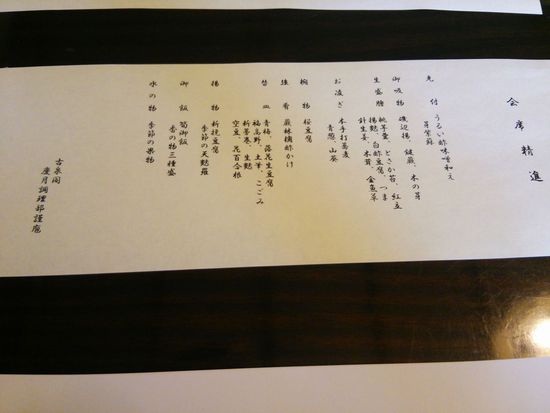 会席精進
先付 うるい酢味噌和え
芽紫蘇
御吸物 磯辺揚、鍵蕨、木の芽
生盛膾 桃芋羹、とさか苔、紅立
揚麩、白酢豆腐、つま
針生姜、木茸、金魚草
お凌ぎ 本手打蕎麦
青葱、山葵
椀物 桜豆腐
強肴 蕨林檎酢かけ
替皿 青梅、落花生豆腐
福高野、土筆、こごみ
新蕗巻、生麩
空豆、花百合根
揚物 新挽豆腐
季節の天麩羅
御飯 筍御飯
香の物三種盛
水の物 季節の果物
古泉閣
慶月調理部謹庵